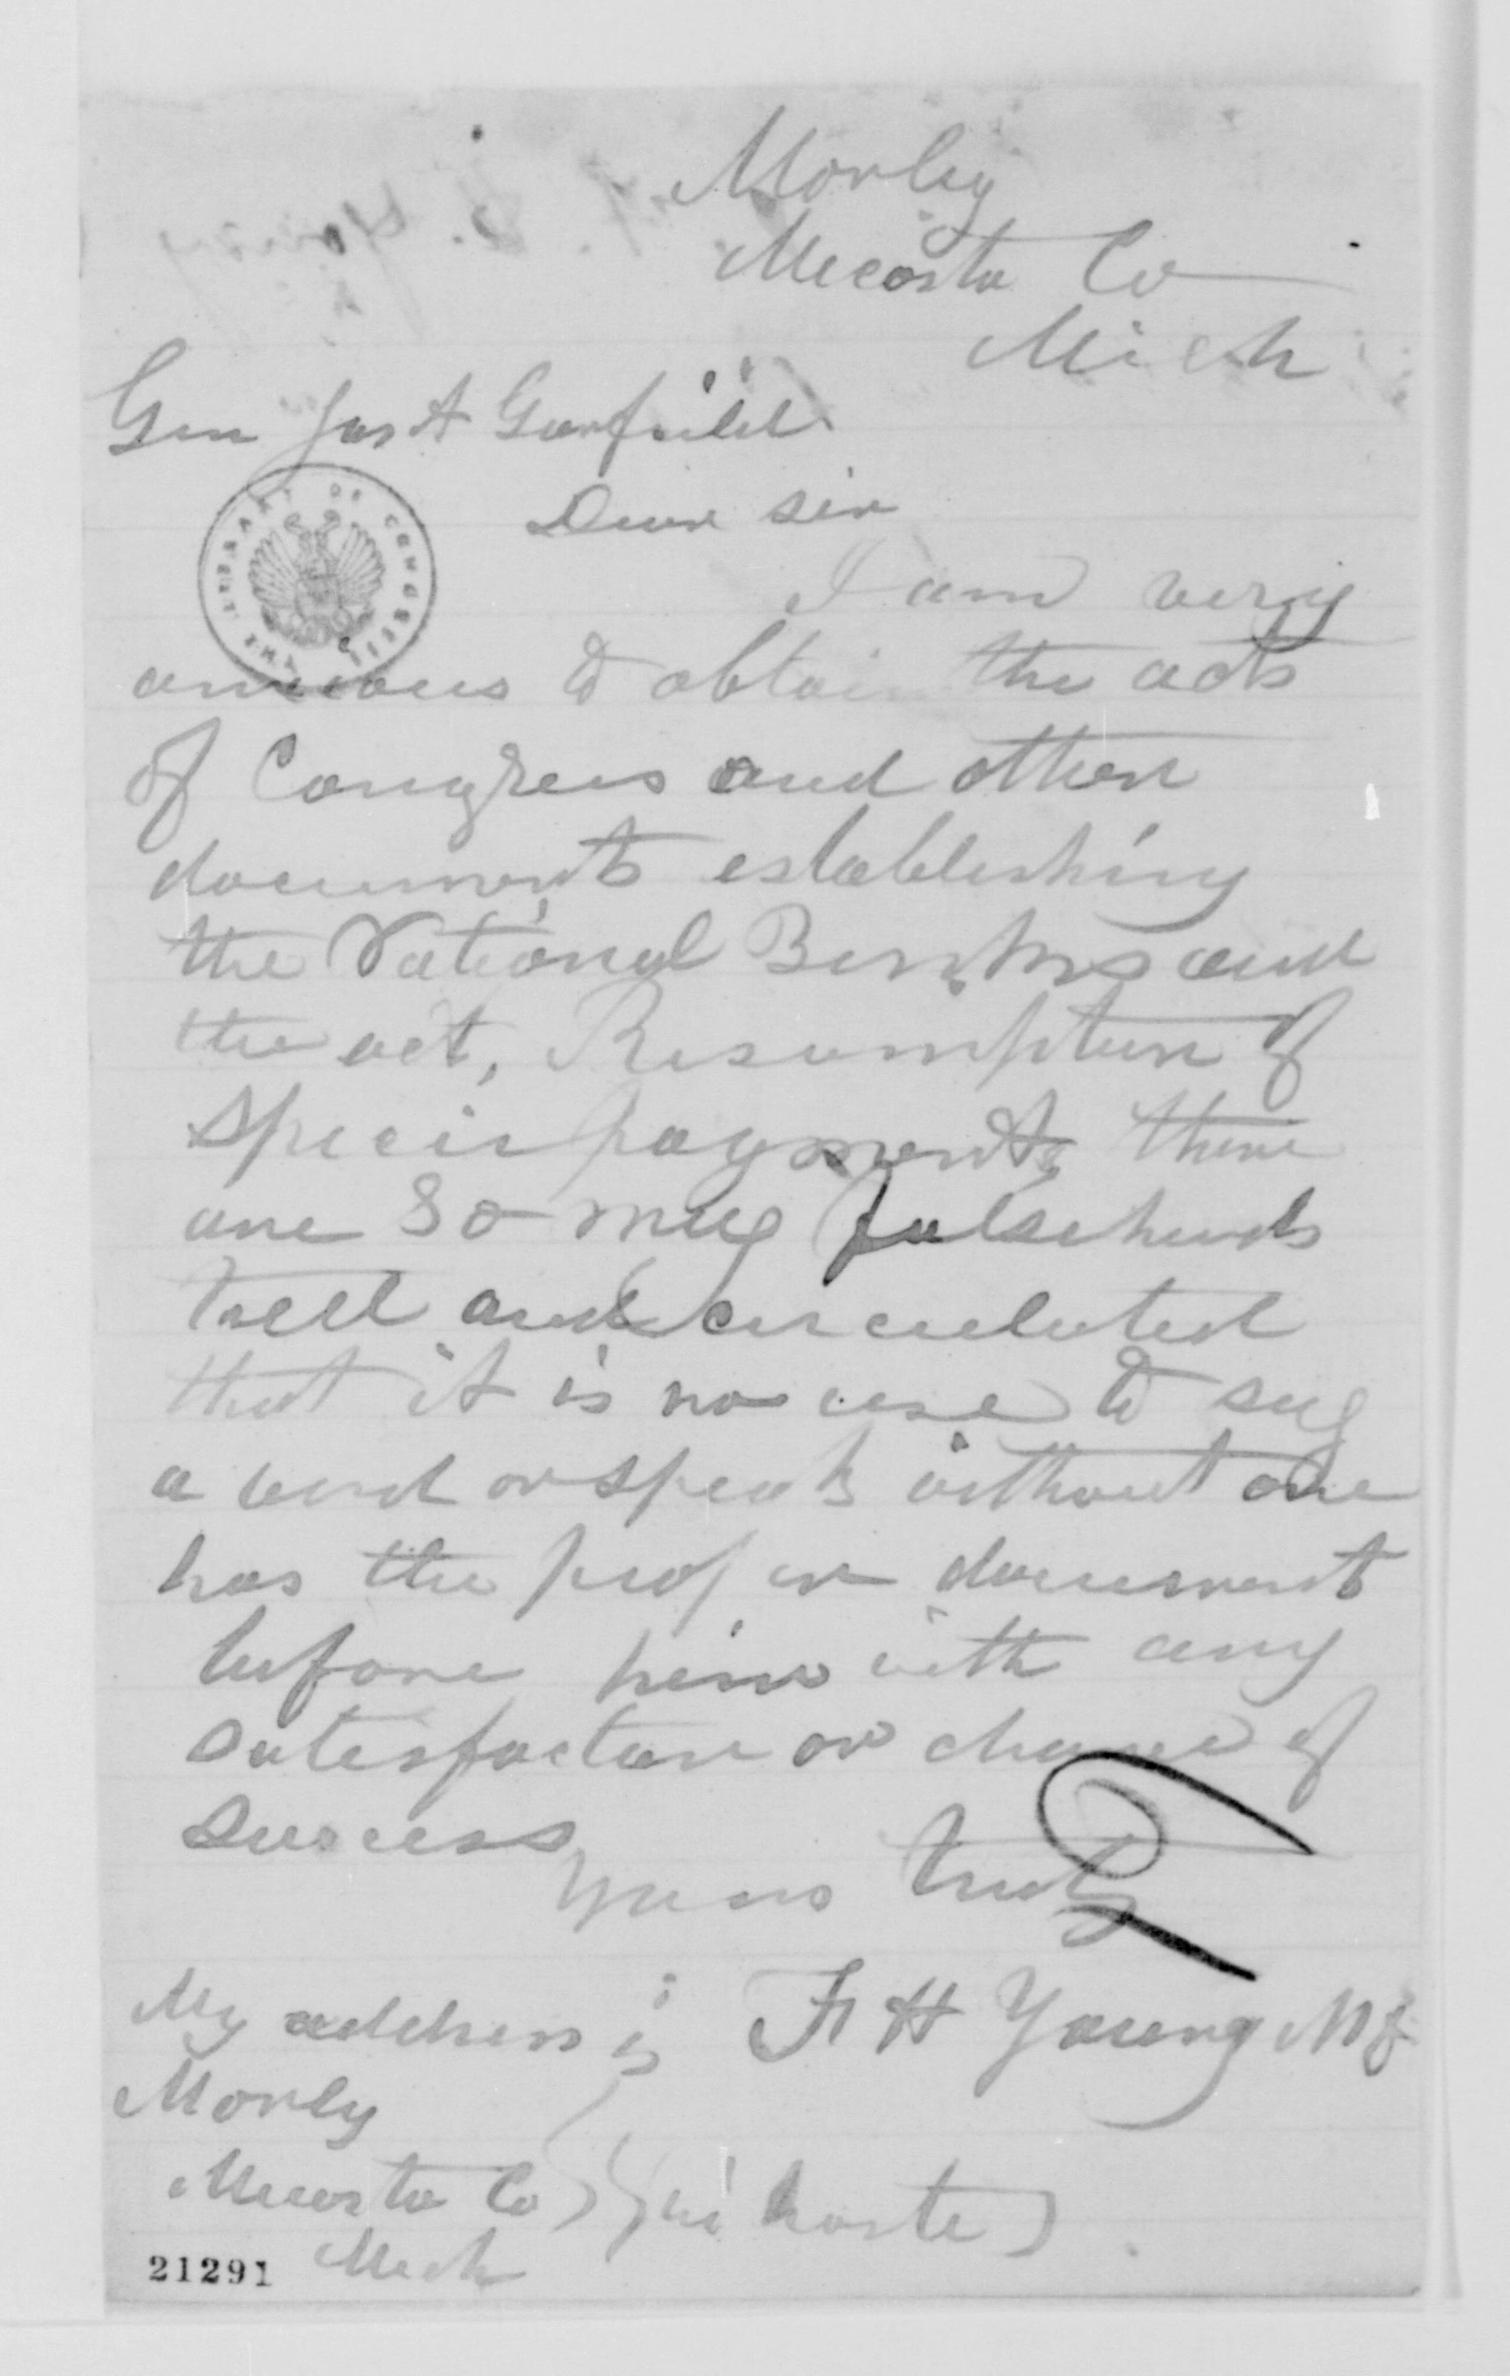 Morley
Mecosta Co
Mich
Gen Jas A Garfeild
Dear sir
I am very
anxious to obtain the acts
of Congress and other
documents establishing
the National Banks and
the act, Resumption of
Specie payments there
are so may falsehoods
tell and circulated
that it is no use to say
a word or speak without one
has the proper documents
before him with any
satisfaction or chance of
success
Yours truly
My address is F H Young MD
Morley
Mecosta Co (in haste)
Mich
21291
THE LIBRARY OF CONGRESS